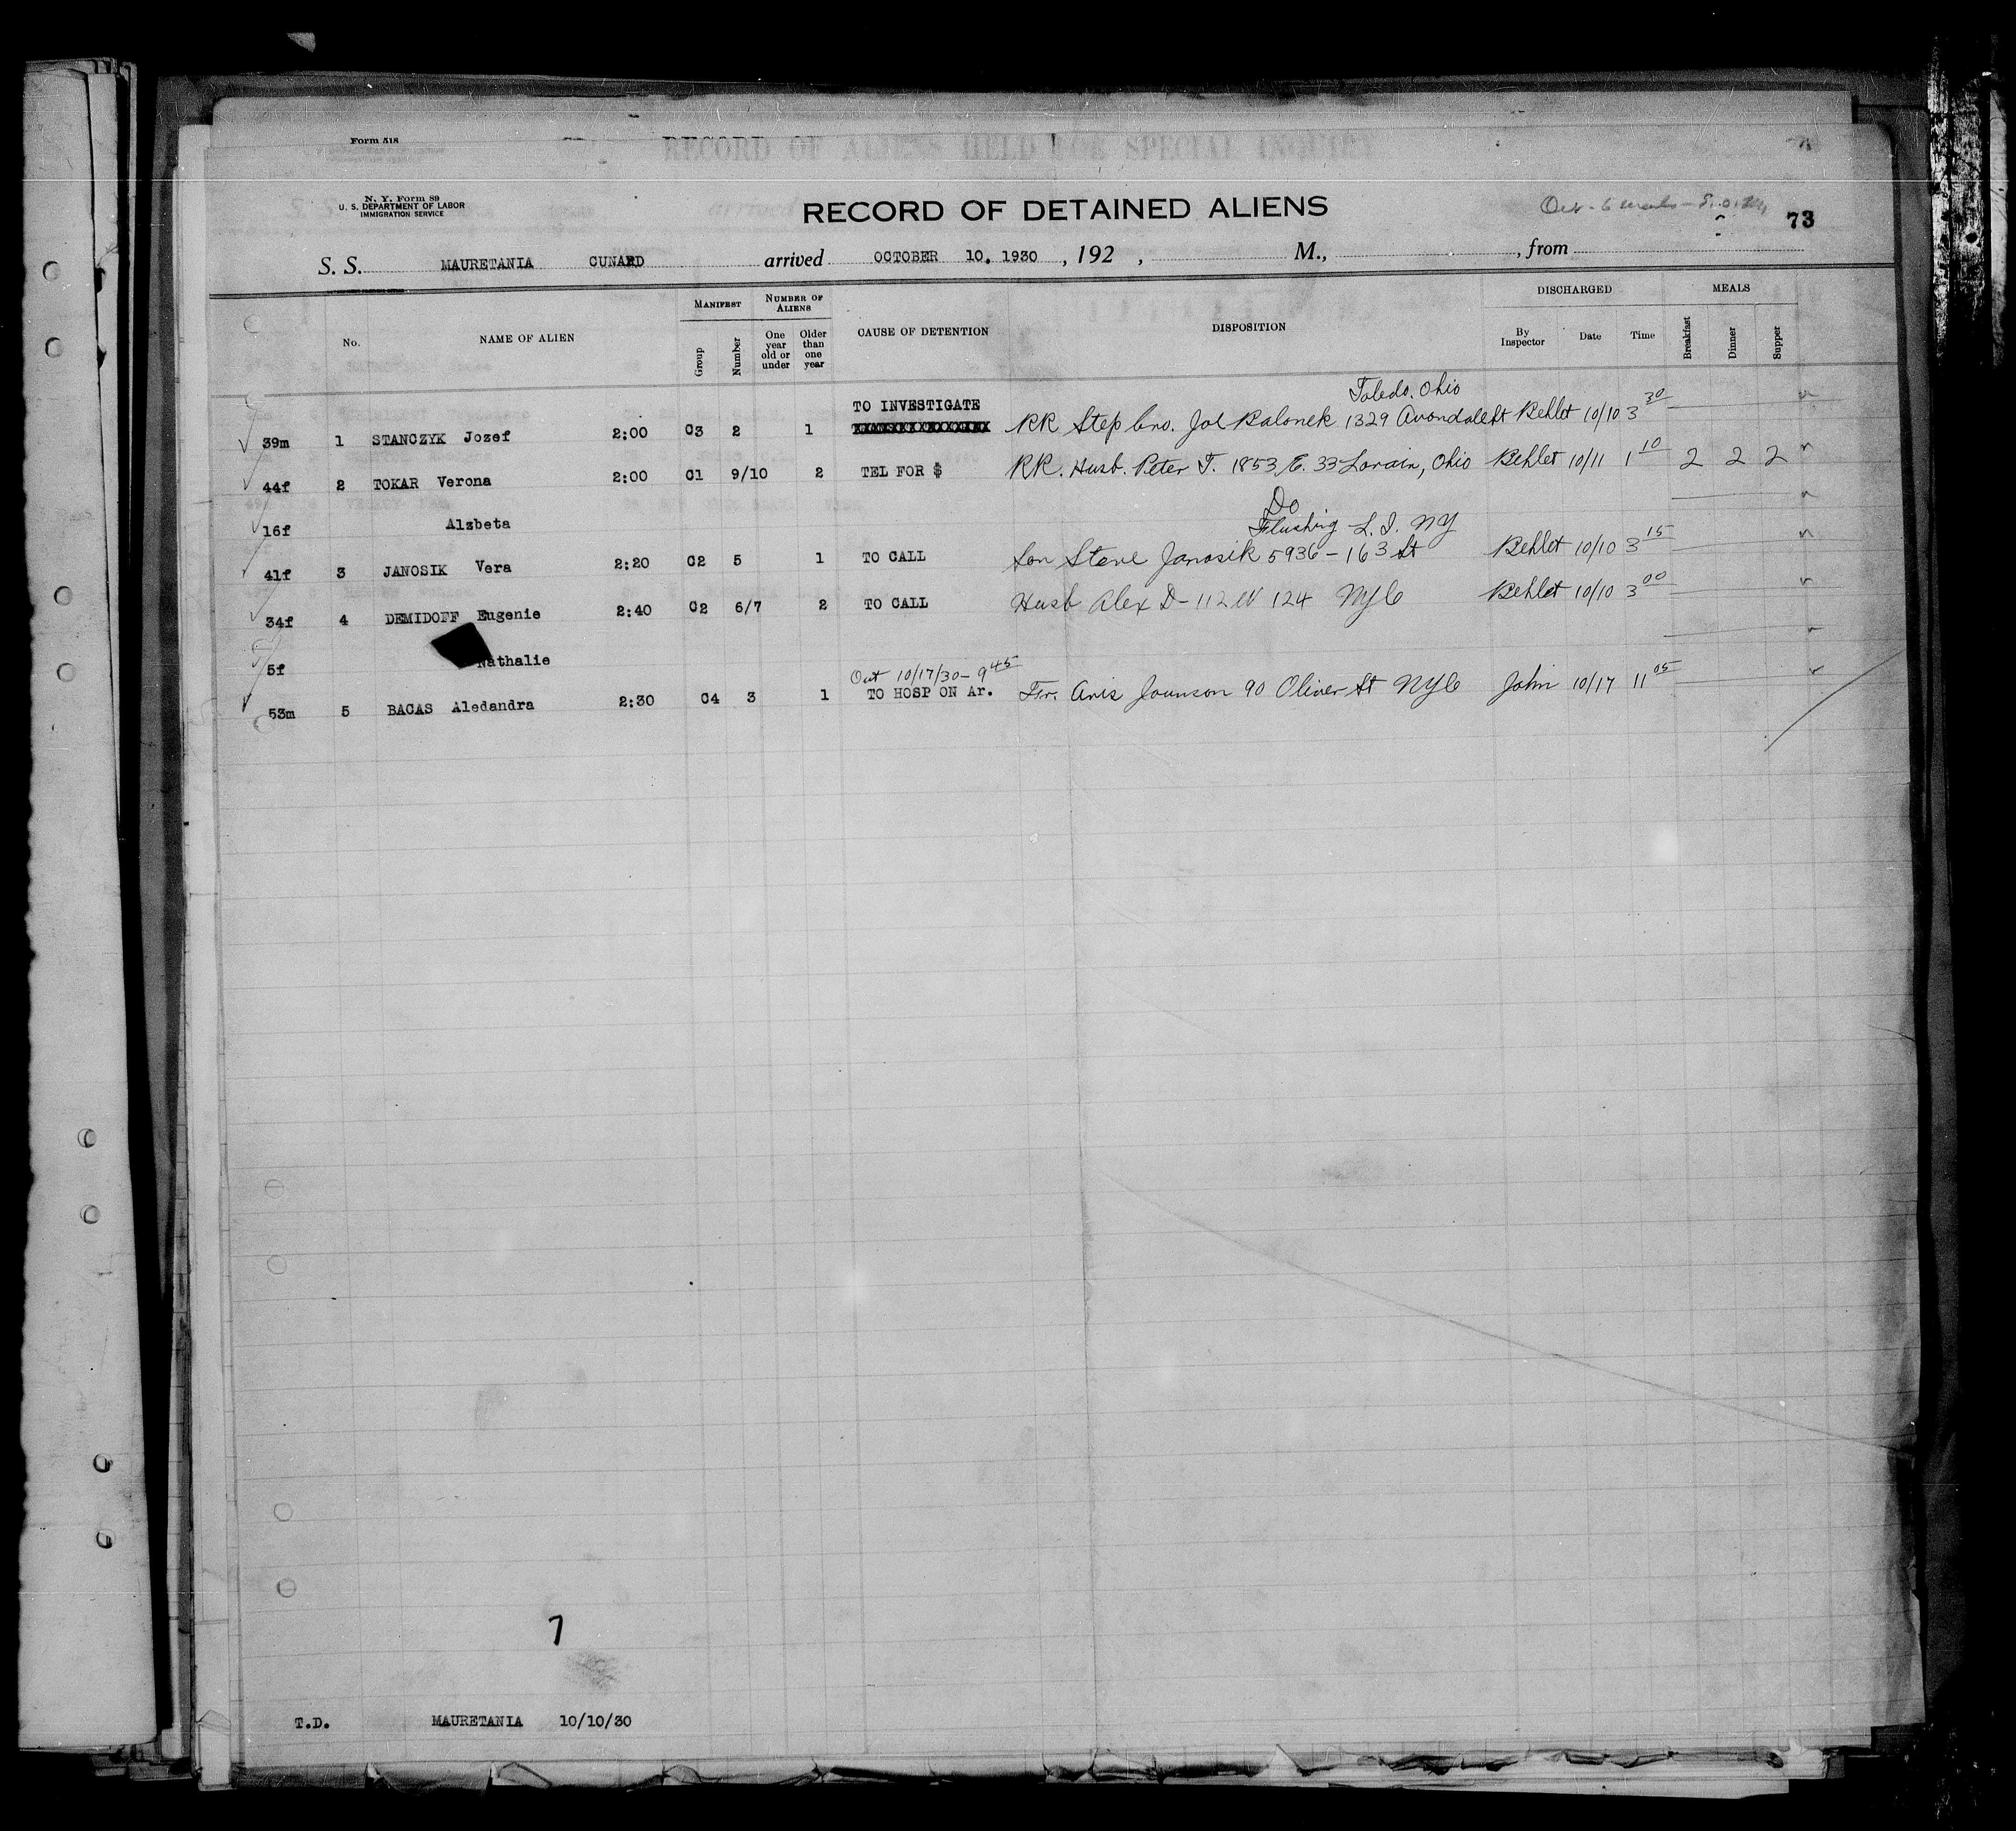 Form 518
RECORD OF ALIENS HELD FOR SPECIAL INQUIRY
N. Y. Form 89
U. S. DEPARTMENT OF LABOR
IMMIGRATION SERVICE
RECORD OF DETAINED ALIENS
73
S. S. MAURETANIA CUNARD arrived OCTOBER 10, 1930 , 192 , M., , from
No. NAME OF ALIEN MANIFEST Group Number NUMBER OF ALIENS One year old or under Older than one year CAUSE OF DETENTION DISPOSITION DISCHARGED By Inspector Date Time MEALS Breakfast Dinner Supper
TO INVESTIGATE Toledo, Ohio
39m 1 STANCZYK Jozef 2:00 C3 2 1 RR Step bro. Joe Balonek 1329 Avondale St Behlet 10/10 3 30
44f 2 TOKAR Verona 2:00 C1 9/10 2 TEL FOR $ RR. Husb. Peter T. 1853 E. 33 Lorain, Ohio Behlet 10/11 1 10 2 2 2
16f Alzbeta Do
Flushing L. I. NY
41f 3 JANOSIK Vera 2:20 C2 5 1 TO CALL Son Steve Janosik 5936-163 St Behlet 10/10 3 15
34f 4 DEMIDOFF Eugenie 2:40 C2 6/7 2 TO CALL Husb Alex D- 112 W 124 NYC Behlet 10/10 3 00
5f Nathalie
Out 10/17/30- 9 45
53m 5 BACAS Aledandra 2:30 C4 3 1 TO HOSP ON Ar. Fr. Anis Jounson 90 Oliver St NYC John 10/17 11 05
7
T.D. MAURETANIA 10/10/30